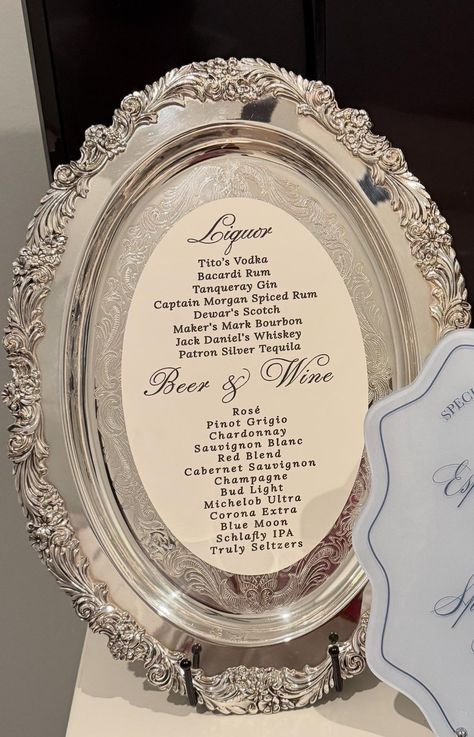 Liquor
Tito's Vodka
Bacardi Rum
Tanqueray Gin
Captain Morgan Spiced Rum
Dewar's Scotch
Maker's Mark Bourbon
Jack Daniel's Whiskey
Patron Silver Tequila
Beer & Wine
Rosé
Pinot Grigio
Chardonnay
Sauvignon Blanc
Red Blend
Cabernet Sauvignon
Champagne
Bud Light
Michelob Ultra
Corona Extra
Blue Moon
Schlafly IPA
Truly Seltzers